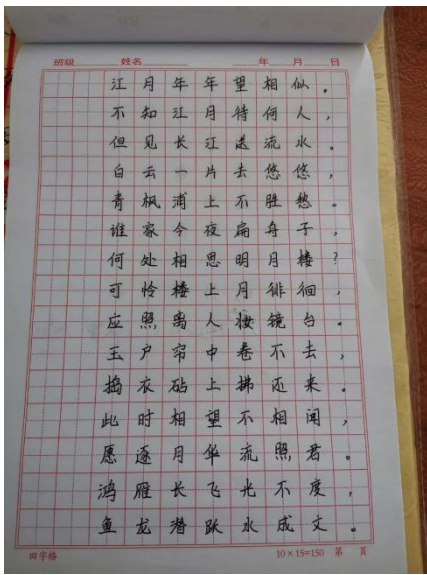 班级 姓名 年 月 日
江月年年望相似。
不知江月待何人,
但见长江送流水。
白云一片去悠悠,
青枫浦上不胜愁。
谁家今夜扁舟子,
何处相思明月楼?
可怜楼上月徘徊,
应照离人妆镜台。
玉户帘中卷不去,
捣衣砧上拂还来。
此时相望不相闻,
愿逐月华流照君。
鸿雁长飞光不度,
鱼龙潜跃水成文。
田字格 10×15=150 第 页